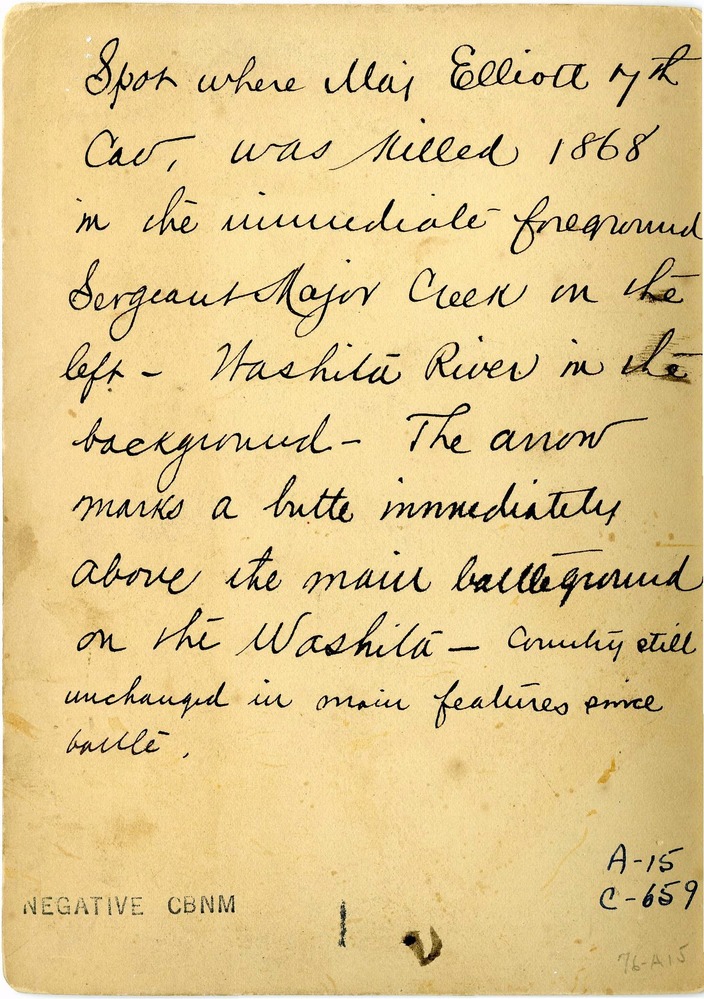 Spot where Maj Elliott 7th
Cav, was killed 1868
in the immediate foreground
Sergeant Major Creek on the
left - Washita River in the
background - The arrow
marks a butte immediately
above the main battleground
on the Washita - Country still
unchanged in main features since
battle.
A-15
C-659
NEGATIVE CBNM
76-A15